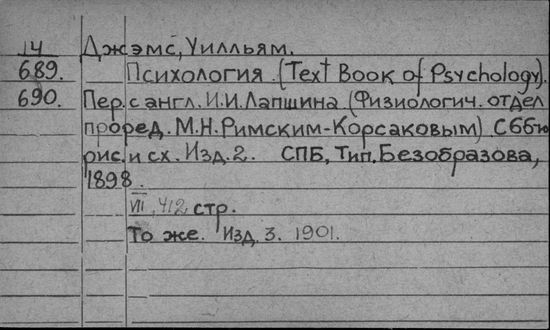 14 Джэмс, Уилльям.
689. Психология. (Text Book of Psychology).
690. Пер. с англ. И.И. Лапшина (Физиологич. отдел
проред. М.Н. Римским-Корсаковым) С 66-ю
рис. и сх. Изд. 2. СПБ, Тип. Безобразова,
1898.
VII, 412 стр.
То же. Изд. 3. 1901.